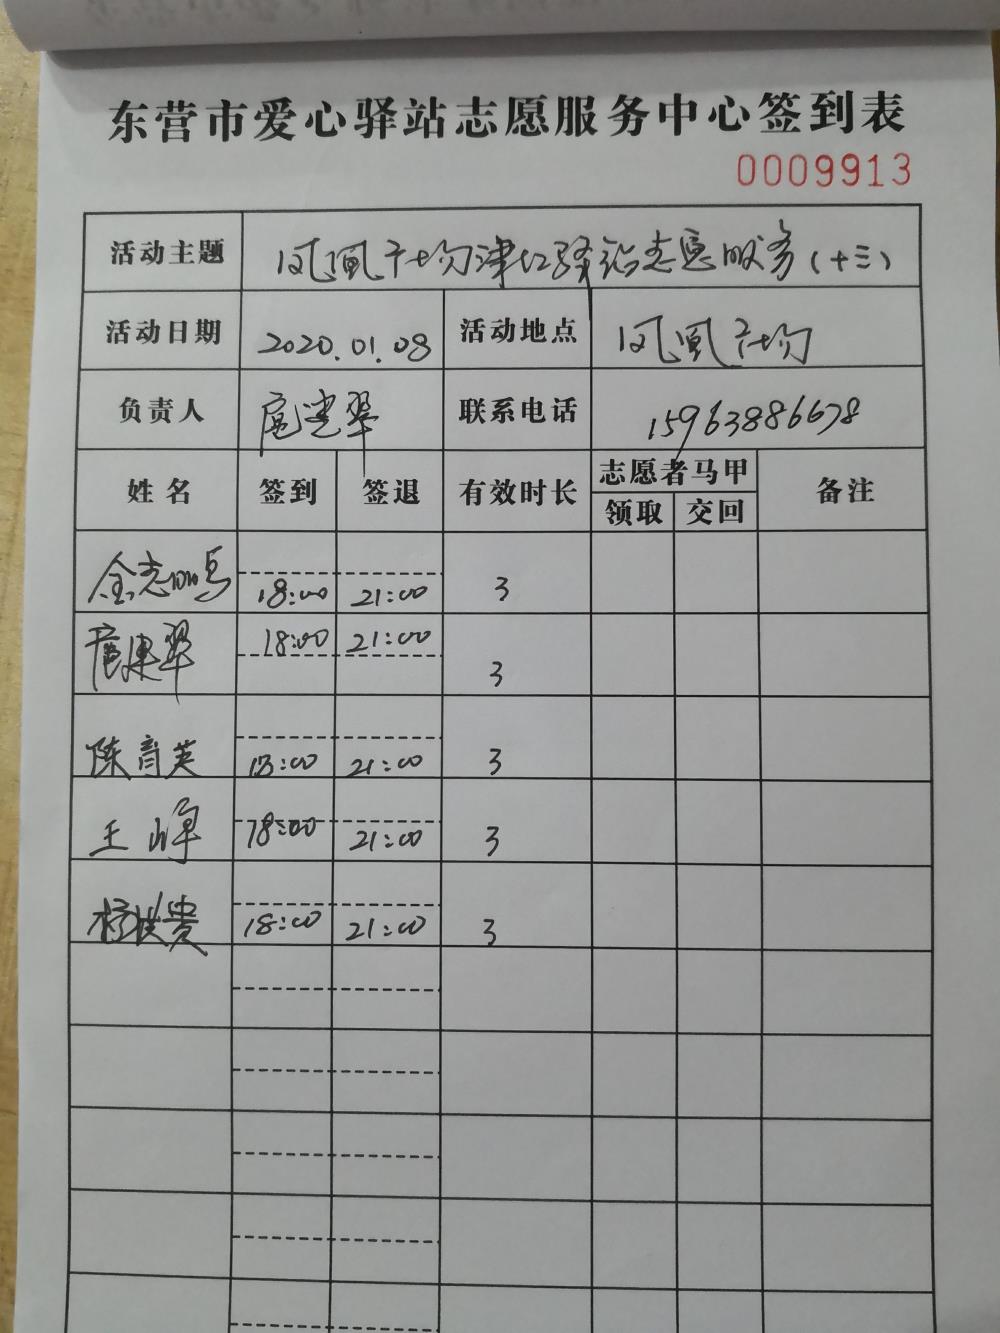 东营市爱心驿站志愿服务中心签到表
0009913
活动主题 凤凰广场津红驿站志愿服务(十三)
活动日期 2020.01.08 活动地点 凤凰广场
负责人 联系电话 15963886678
姓名 签到 签退 有效时长 志愿者马甲 备注
领取 交回
18:00 21:00 3
18:00 21:00 3
陈育英 18:00 21:00 3
王峰 18:00 21:00 3
18:00 21:00 3